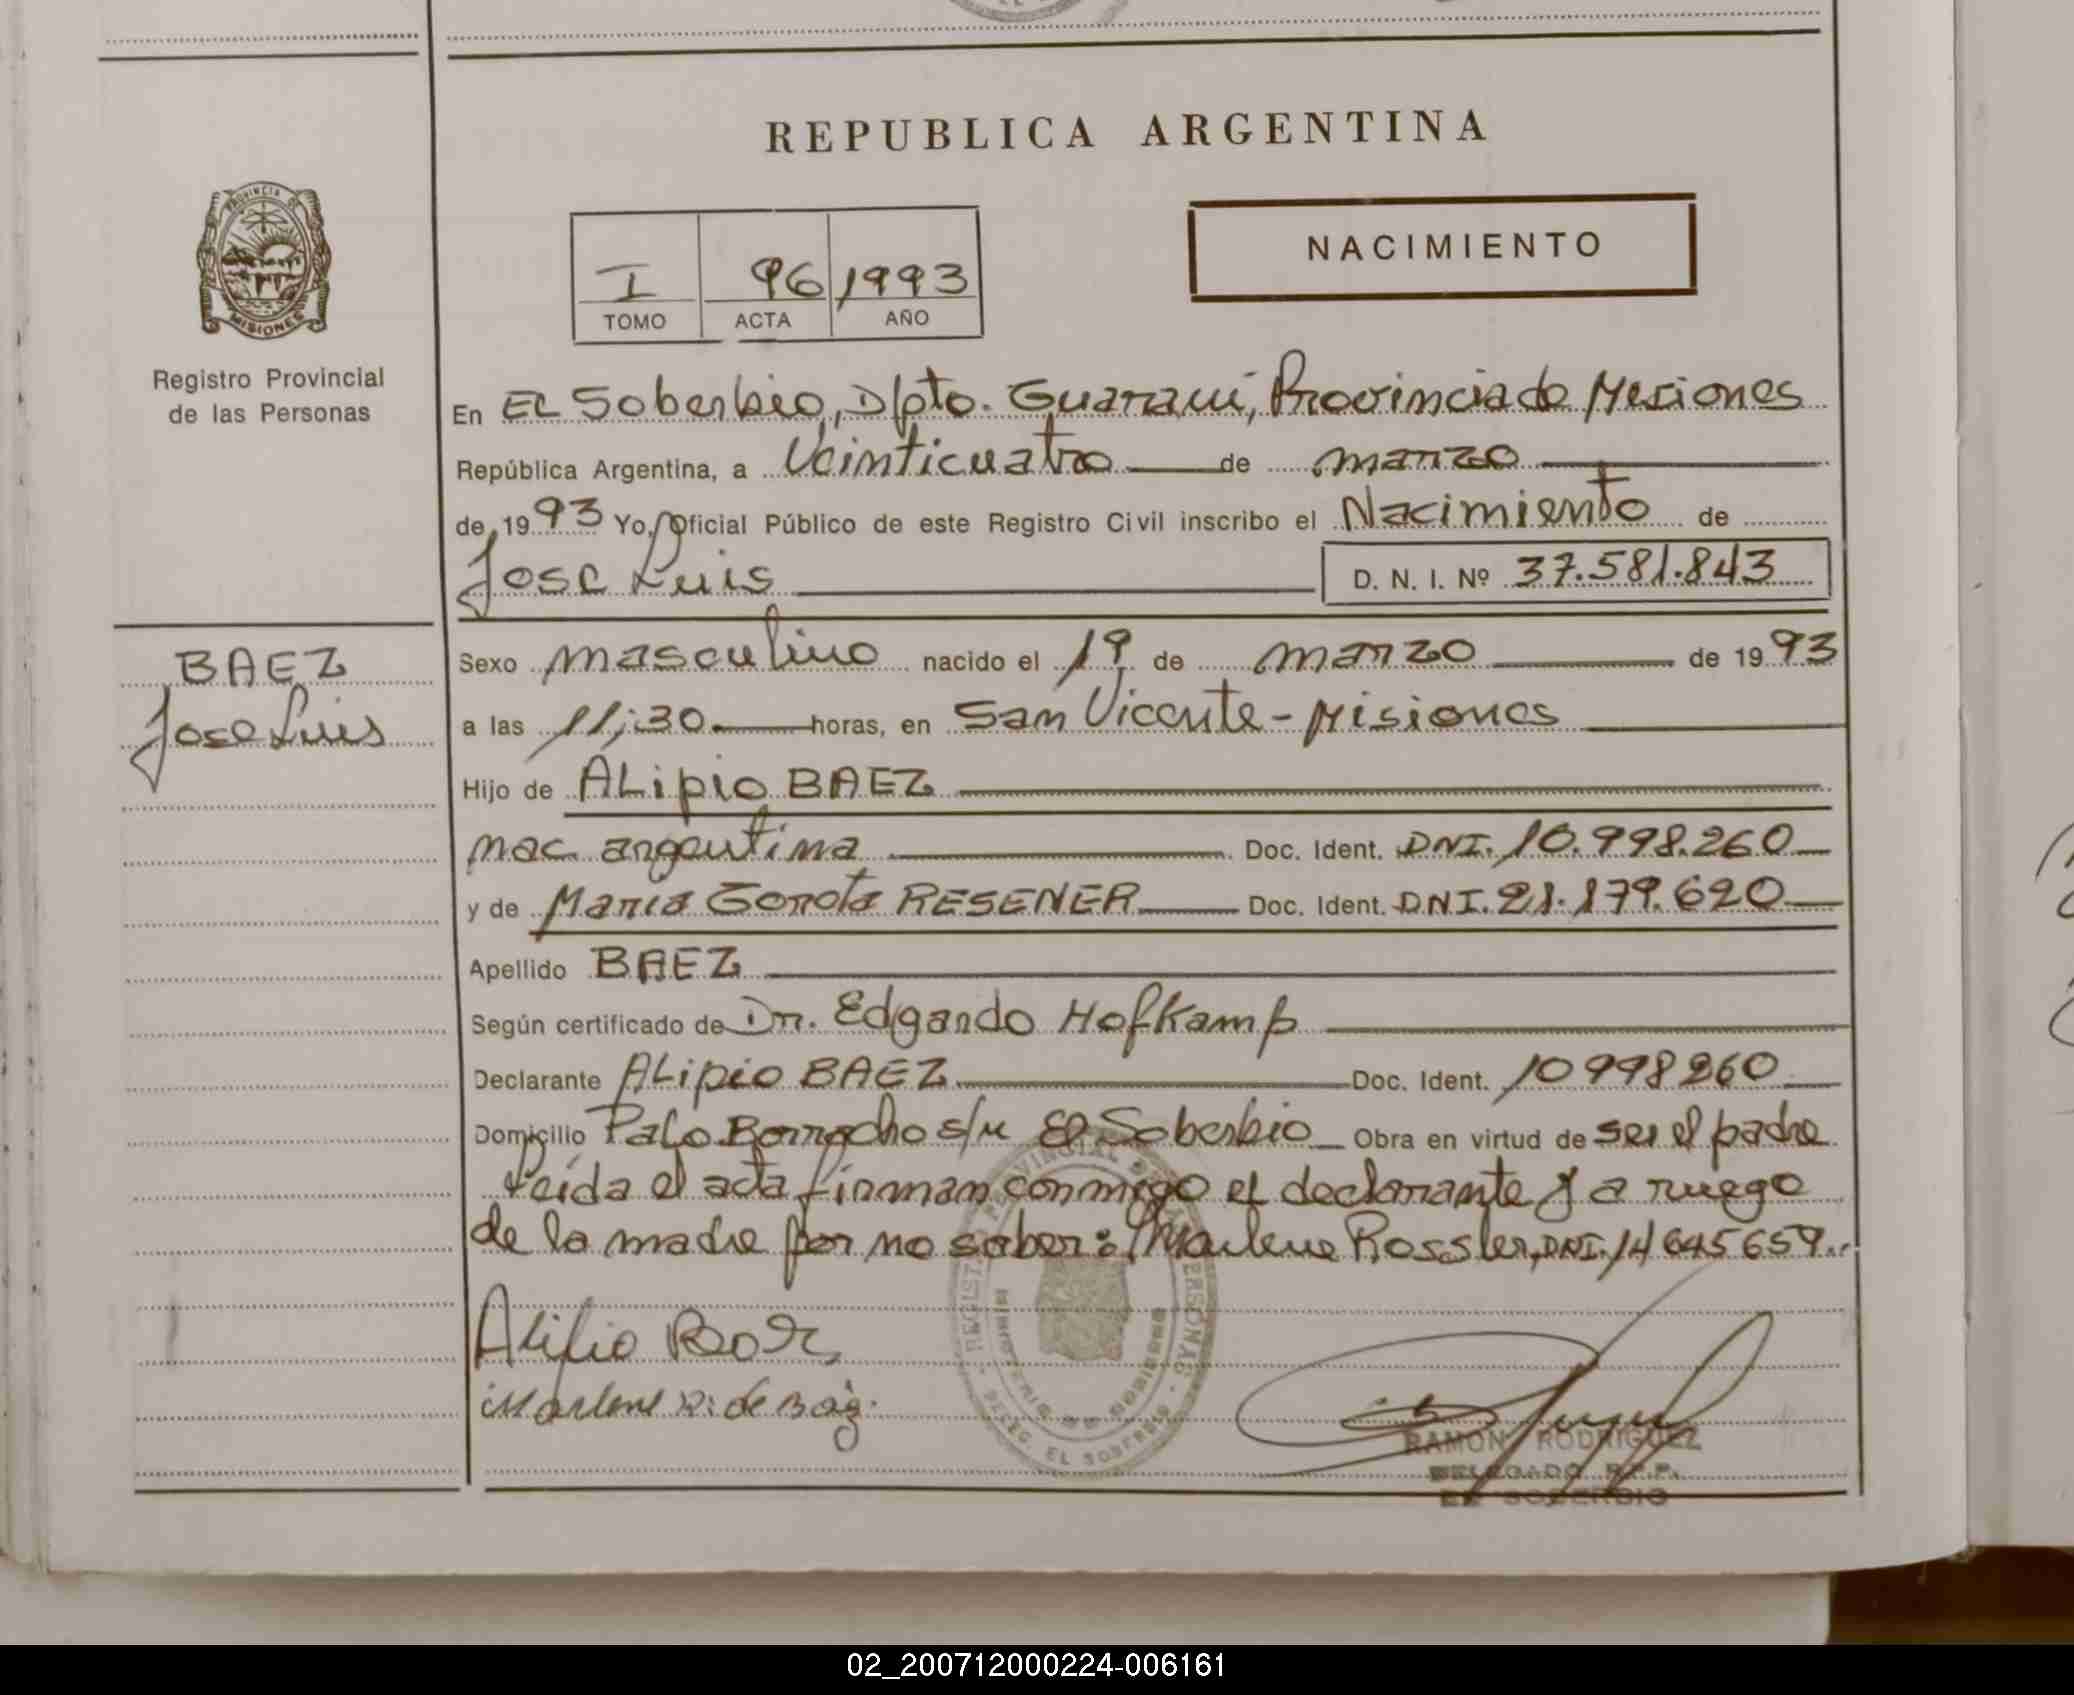 REPUBLICA ARGENTINA
PROVINCIA DE
MISIONES
Registro Provincial
de las Personas
I 96 1993
TOMO ACTA AÑO
NACIMIENTO
En EL Soberbio, D/pto. Guarani, Provincia de Misiones
República Argentina, a Veinticuatro de marzo
de 1993 Yo, Oficial Público de este Registro Civil inscribo el Nacimiento de
Jose Luis D. N. I. Nº 37.581.843
BAEZ
Jose Luis
Sexo masculino nacido el 19 de marzo de 1993
a las 11;30 horas, en San Vicente - Misiones
Hijo de ALipio BAEZ
nac. argentina Doc. Ident. DNI. 10.998.260
y de Maria RESENER Doc. Ident. DNI. 21.179.620
Apellido BAEZ
Según certificado de Dr. Edgardo Hofkamp
Declarante ALipio BAEZ Doc. Ident. 10998260
Domicilio Palo Borracho s/n El Soberbio Obra en virtud de ser el padre
Leida el acta firman conmigo el declarante y a ruego
de la madre por no saber: Marlene Rossler, DNI. 14645659..
Alipio Baez
Marlene R. de Baez.
REGISTRO PROVINCIAL DE LAS PERSONAS
DELEG. EL SOBERBIO
RAMON RODRIGUEZ
DELEGADO R.P.P.
EL SOBERBIO
02_200712000224-006161